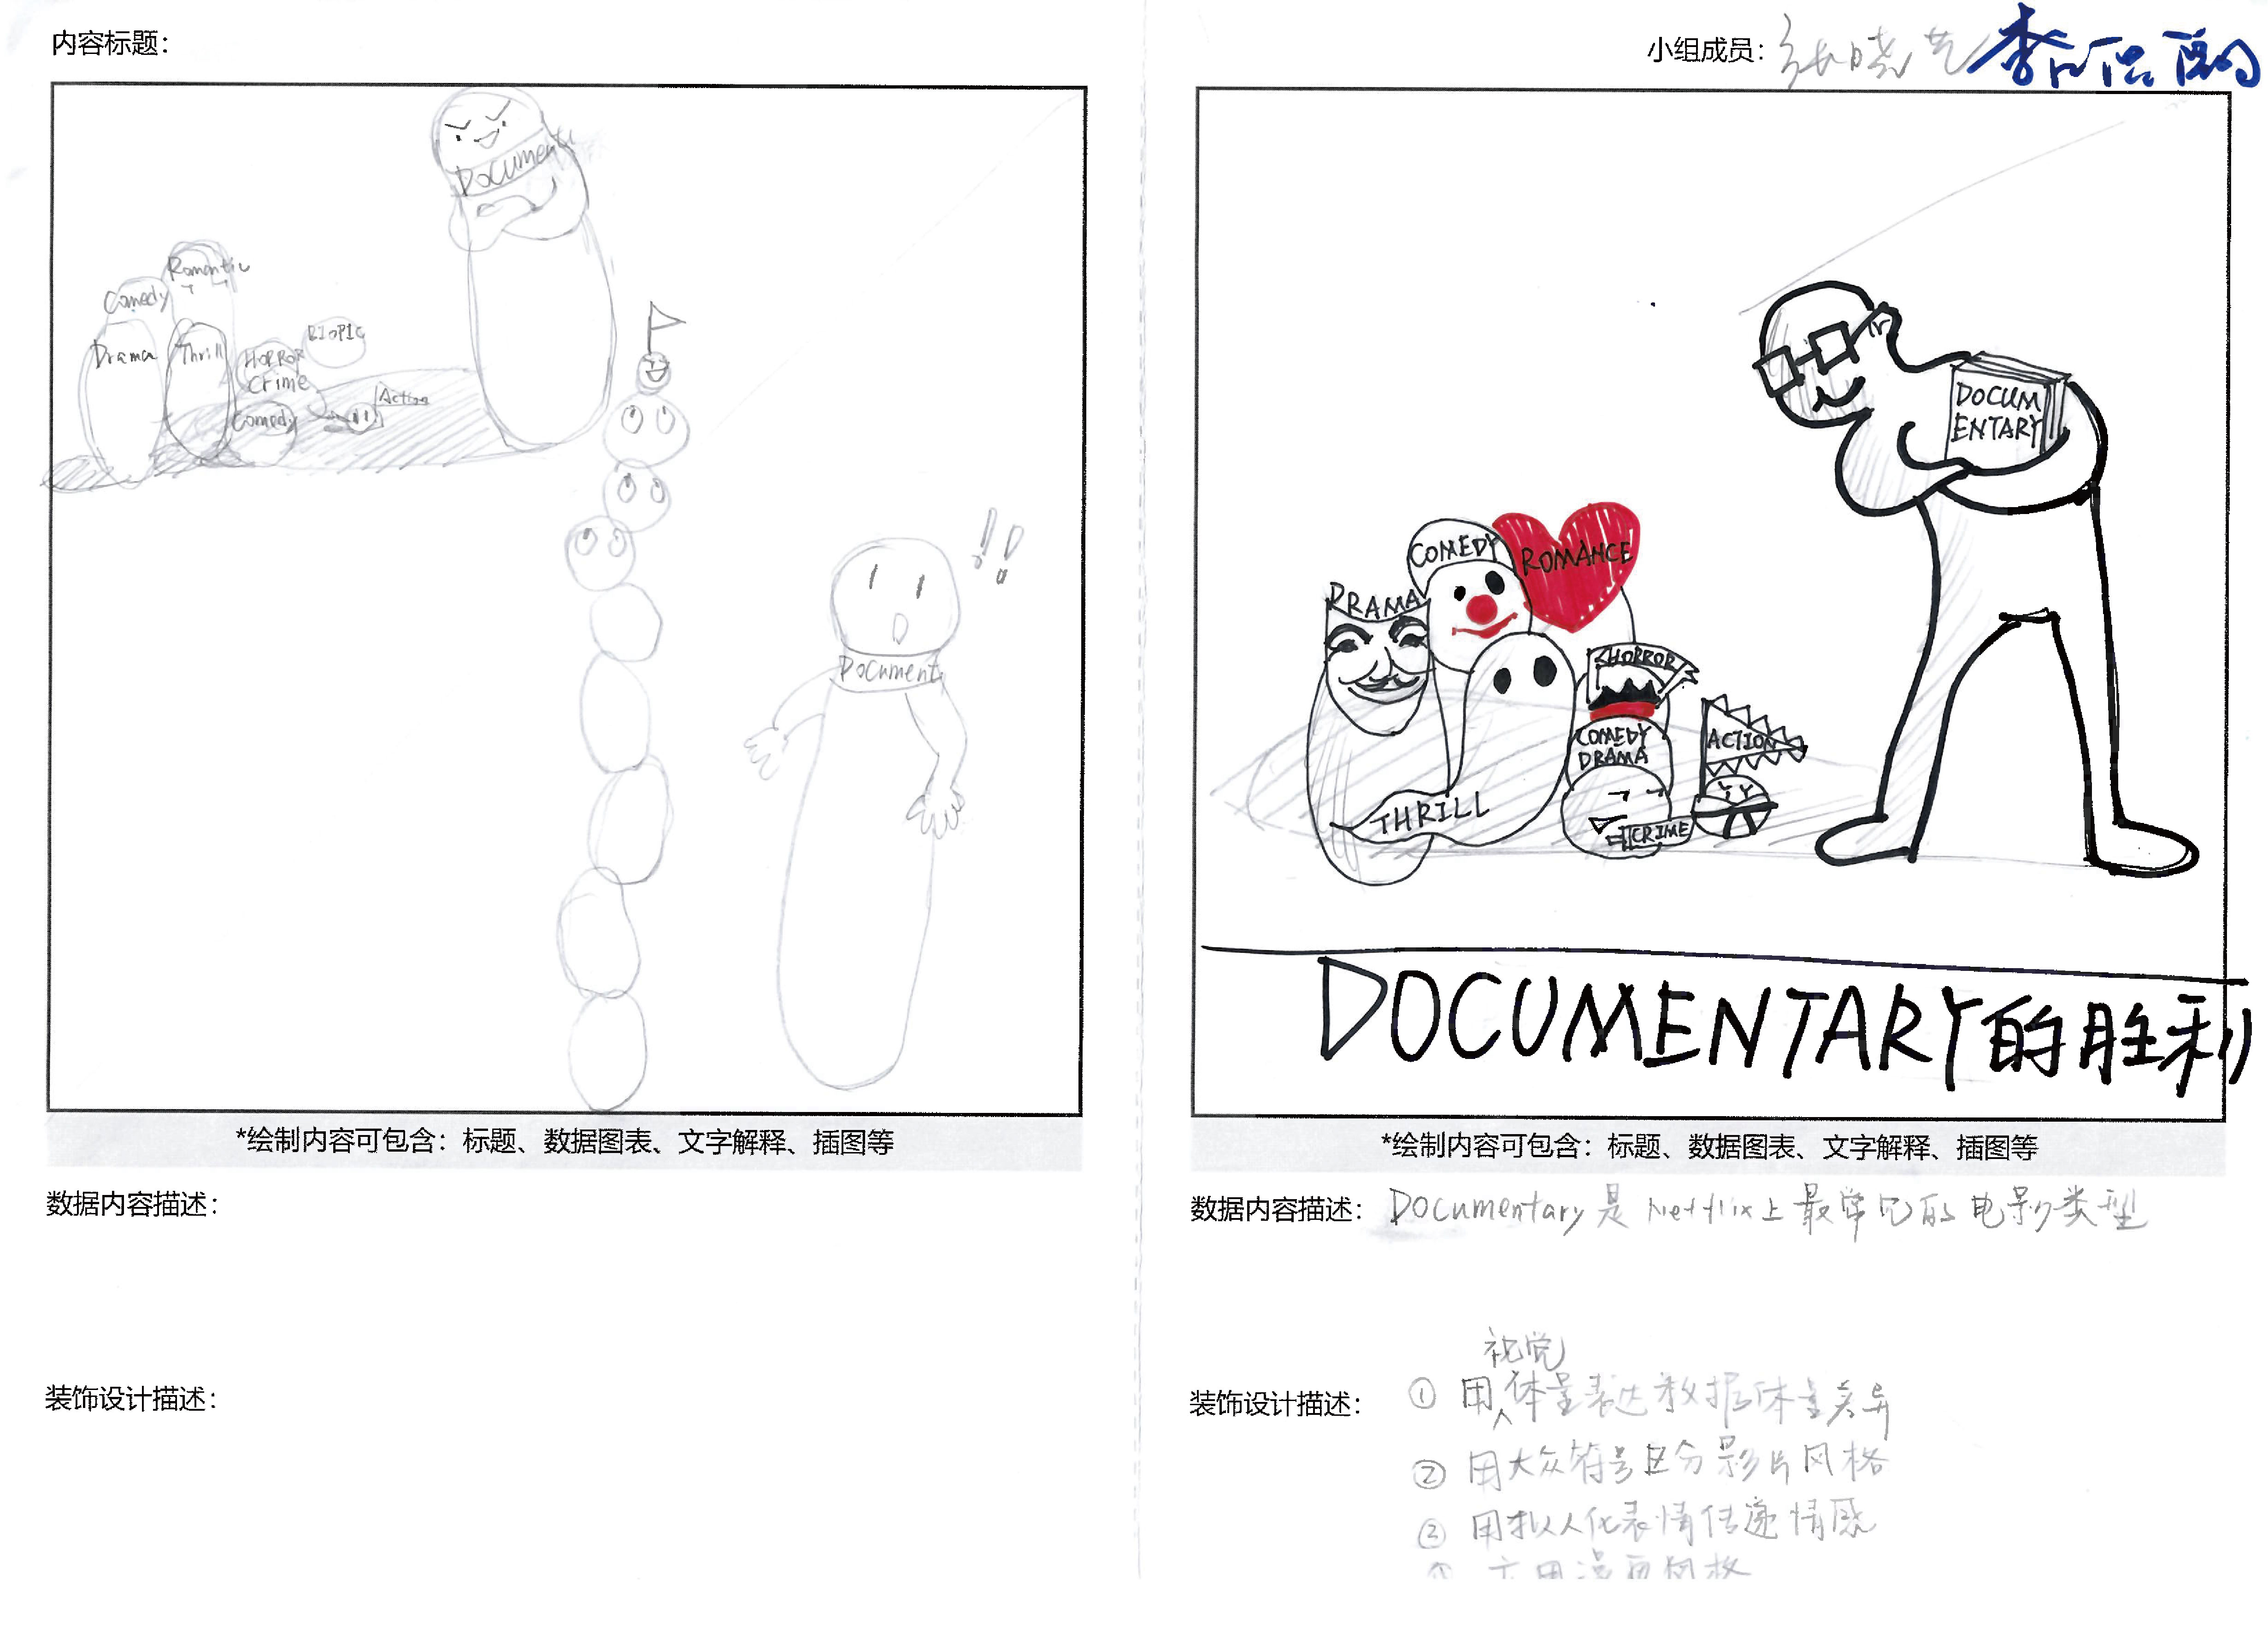 内容标题：
Document
Romantic
Comedy
Drama
Thrill
HORROR
BIOPIC
Crime
Comedy
Action
!!
Document
*绘制内容可包含：标题、数据图表、文字解释、插图等
数据内容描述：
装饰设计描述：
小组成员：张晓艺
DOCUM
ENTARY
COMEDY
ROMANCE
DRAMA
HORROR
COMEDY
DRAMA
ACTION
THRILL
CRIME
DOCUMENTARY的胜利
*绘制内容可包含：标题、数据图表、文字解释、插图等
数据内容描述：Documentary是Netflix上最常见的电影类型
装饰设计描述：
①用视觉体量表达数据体量差异
②用大众符号区分影片风格
③用拟人化表情传递情感